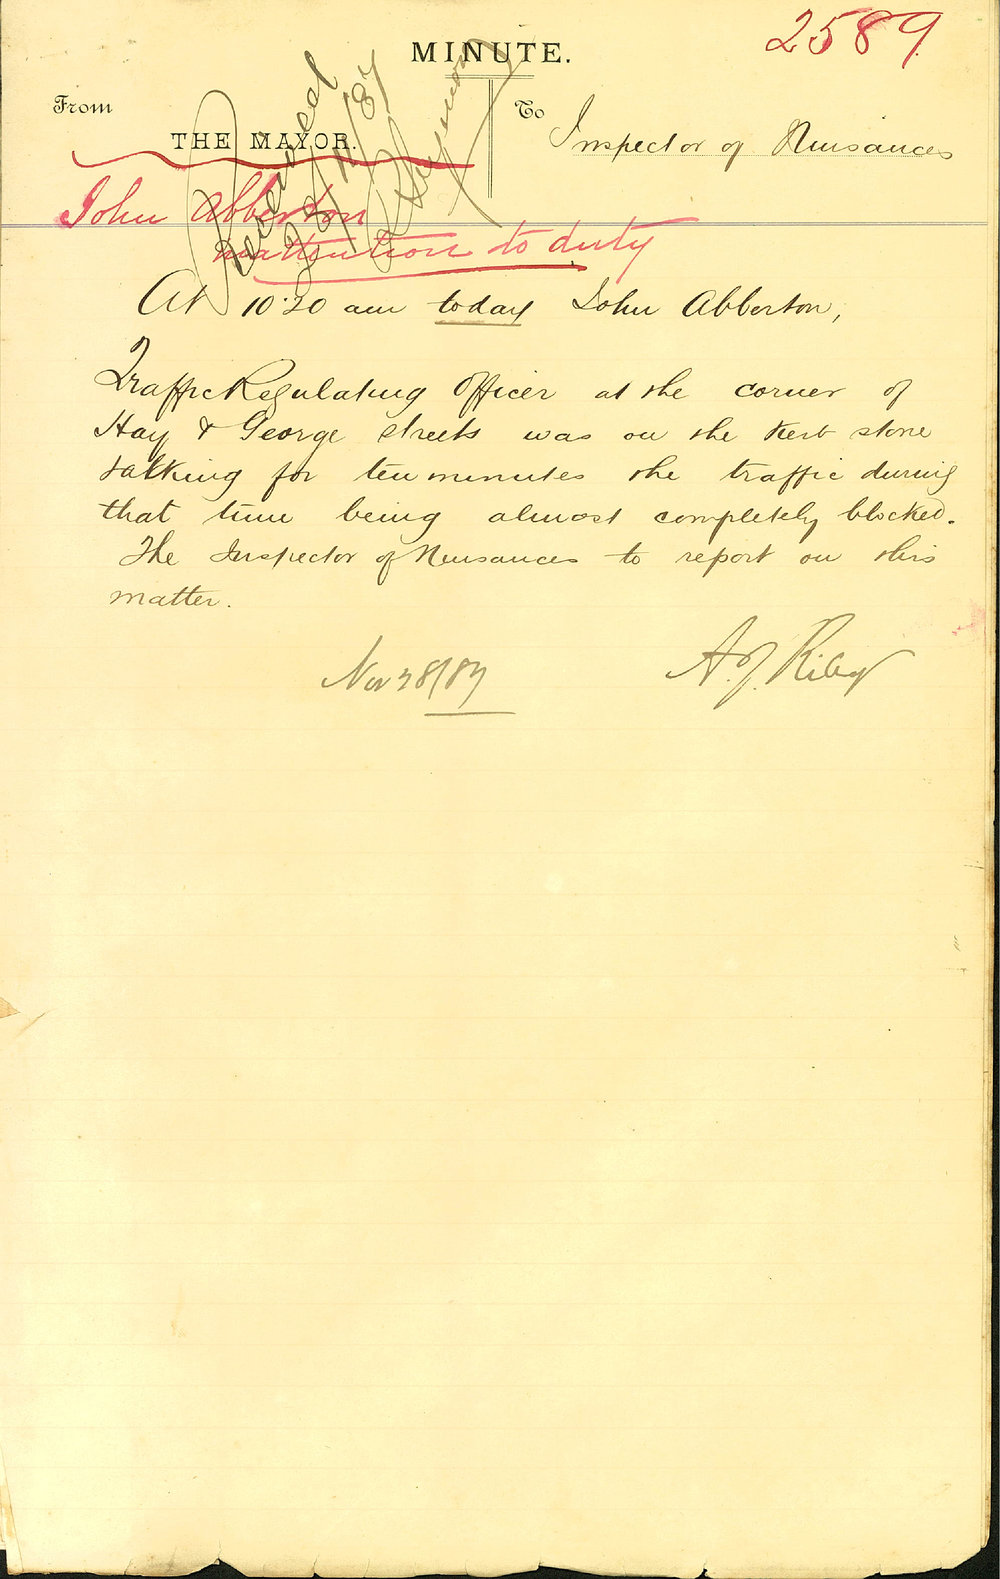 2589
MINUTE.
From
THE MAYOR.
To
Inspector of Nuisances
Received
/11/87
John Abberton
inattention to duty
At 10.20 am today John Abberton,
Traffic Regulating Officer at the corner of
Hay & George streets was on the kerb stone
talking for ten minutes the traffic during
that time being almost completely blocked.
The Inspector of Nuisances to report on this
matter.
Nov 28/87
A. J. Riley